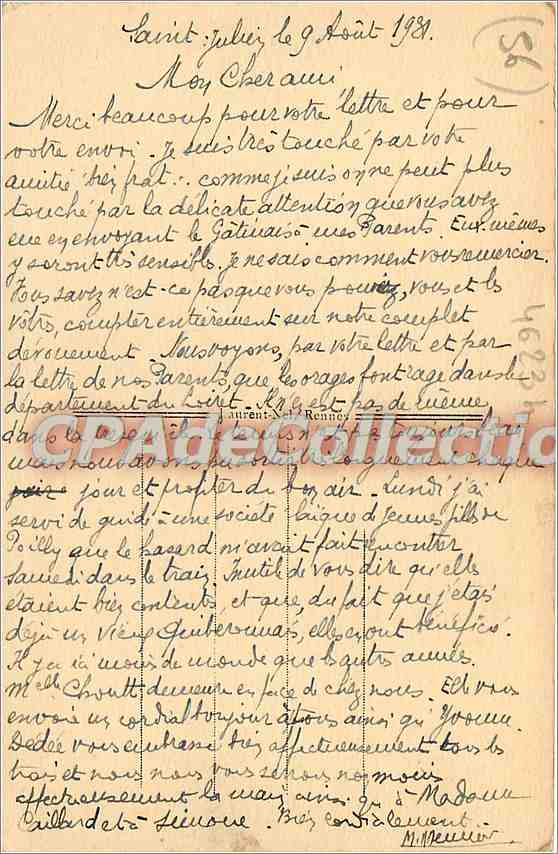 Saint-Julien le 9 Août 1931.
(56)
Mon Cher ami
Merci beaucoup pour votre lettre et pour
votre envoi. Je suis très touché par votre
amitié comme je suis on ne peut plus
touché par la délicate attention que vous avez
eue en envoyant le Gâtinais à mes Parents. Eux-mêmes
y seront très sensibles. Je ne sais comment vous remercier.
Vous savez n'est-ce pas que vous pouvez, vous et les
vôtres, compter entièrement sur notre complet
dévouement. Nous voyons, par votre lettre et par
la lettre de nos Parents, que les orages font rage dans le
département du Loiret. Il n'en est pas de même
Laurent-Nel, Rennes
dans la
CPADeCollection
mais nous avons pu sortir chaque
jour et profiter du bon air. Lundi j'ai
servi de guide à une société laïque de jeunes filles de
Poilly que le hasard m'avait fait rencontrer
samedi dans le train. Inutile de vous dire qu'elles
étaient bien contentes, et que, du fait que j'étais
déjà un vieux Quiberonnais, elles en ont bénéficié.
Il y a ici moins de monde que les autres années.
Melle demeure en face de chez nous. Elle vous
envoie un cordial bonjour à tous ainsi qu'Yvonne.
Dédée vous embrasse bien affectueusement tous les
trois et nous nous vous serrons non moins
affectueusement la main ainsi qu'à Madame
Caillard et à Simone. Bien cordialement.
M. Meunier
46224